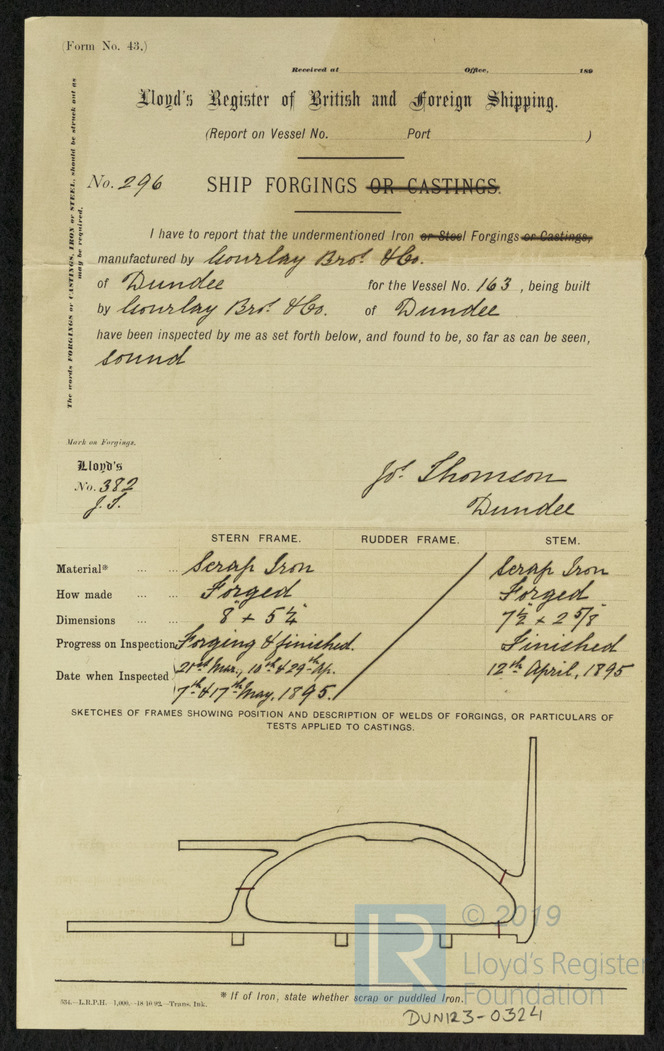 (Form No. 43.)
Received at Office, 189
Lloyd's Register of British and Foreign Shipping.
(Report on Vessel No. Port )
The words FORGINGS or CASTINGS, IRON or STEEL, should be struck out as
may be required.
No. 296 SHIP FORGINGS OR CASTINGS.
I have to report that the undermentioned Iron or Steel Forgings or Castings,
manufactured by Gourlay Bros. & Co.
of Dundee for the Vessel No. 163, being built
by Gourlay Bros. & Co. of Dundee
have been inspected by me as set forth below, and found to be, so far as can be seen,
sound
Mark on Forgings.
Lloyd's
No. 382
J.T.
Jos. Thomson
Dundee
STERN FRAME. RUDDER FRAME. STEM.
Material* ... ... Scrap Iron Scrap Iron
How made ... ... Forged Forged
Dimensions ... ... 8" + 5¼" 7½" + 2 5/8"
Progress on Inspection Forging & finished. Finished
Date when Inspected 21st Mar., 10th & 29th Ap. 12th April, 1895
7th & 17th May, 1895.
SKETCHES OF FRAMES SHOWING POSITION AND DESCRIPTION OF WELDS OF FORGINGS, OR PARTICULARS OF
TESTS APPLIED TO CASTINGS.
LR
© 2019
Lloyd's Register
Foundation
* If of Iron, state whether scrap or puddled Iron.
534.—L.R.P.H. 1,000.—18 10 92.—Trans. Ink.
DUN123-0324